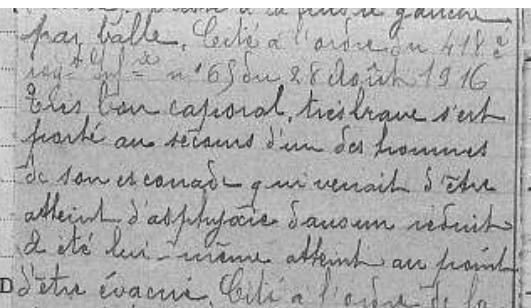 à la fesse gauche
par balle. Cité à l'ordre du 418e
reg-t Inf-ie n° 65 du 28 Août 1916
Très bon caporal, très brave s'est
porté au secours d'un des hommes
de son escouade qui venait d'être
atteint d'asphyxie dans un réduit
a été lui-même atteint au point
d'être évacué. Cité à l'ordre de la